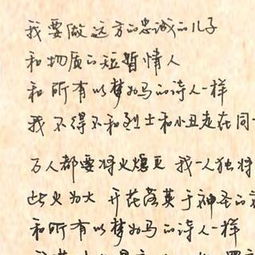 我要做远方的忠诚的儿子
和物质的短暂情人
和所有以梦为马的诗人一样
我不得不和烈士和小丑走在同一
万人都要将火熄灭 我一人独将
此火为大 开花落英于神圣的
和所有以梦为马的诗人一样